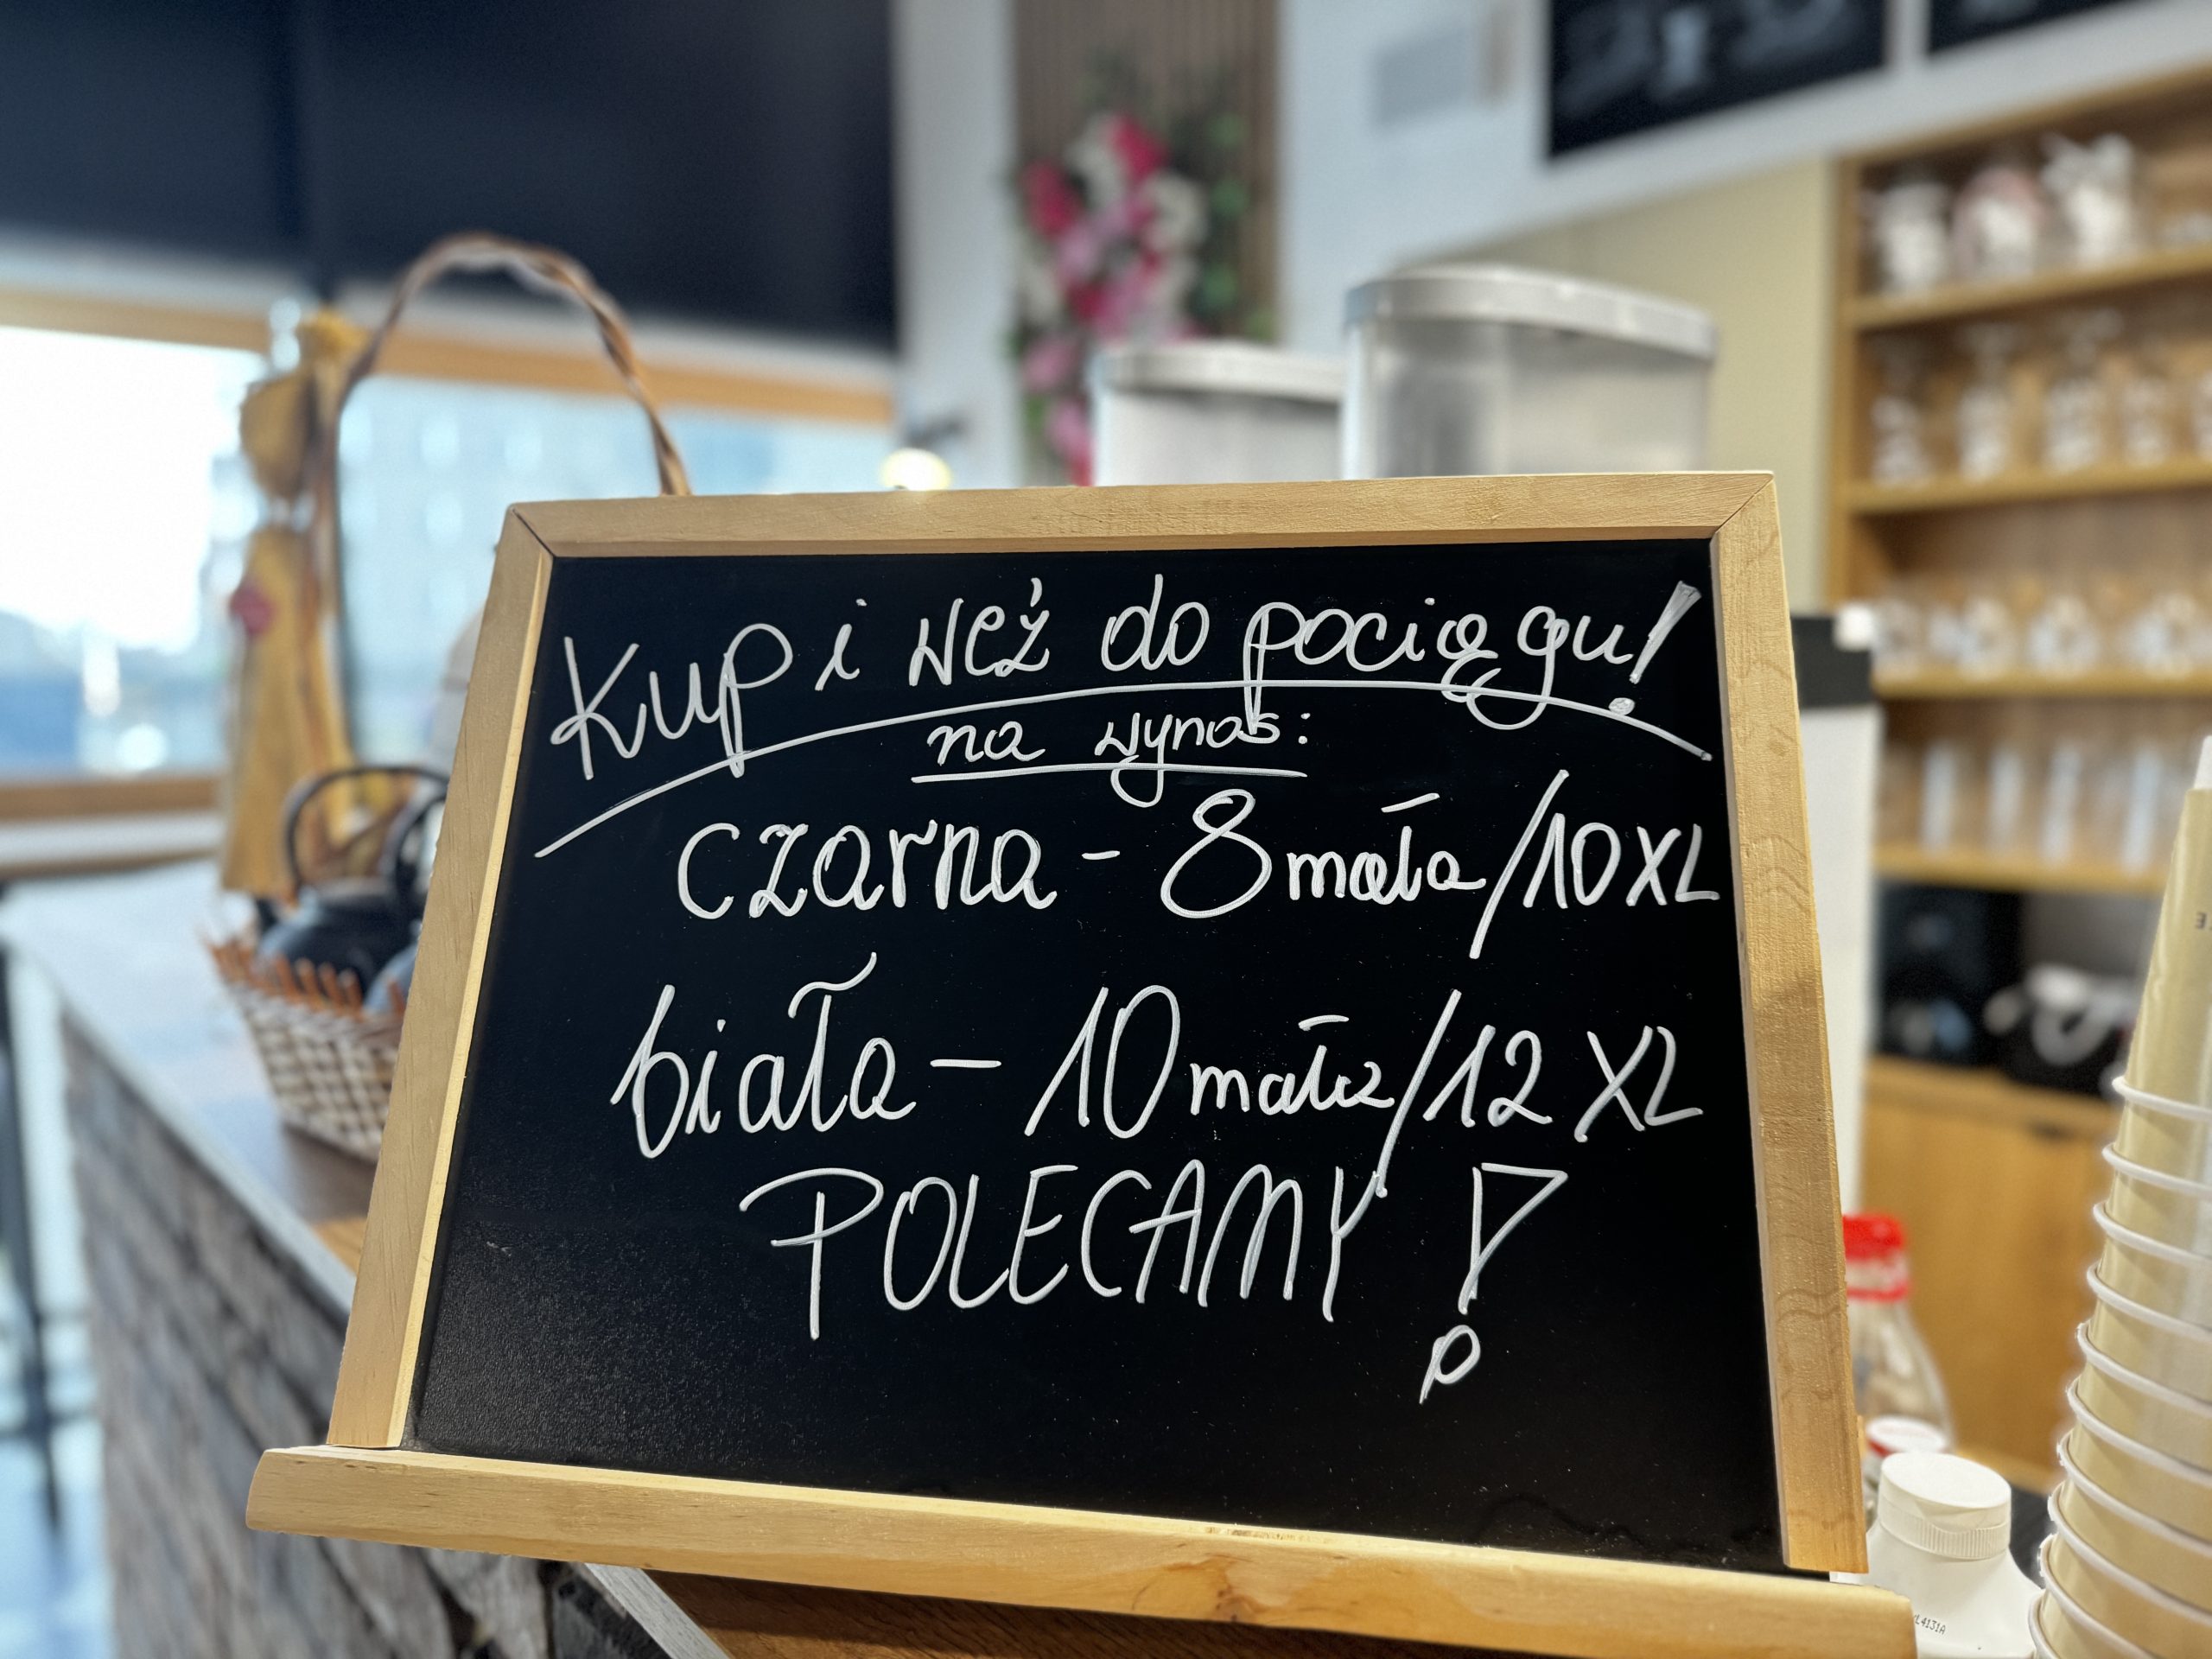 Kup i weź do pociągu!
na wynos:
czarna - 8 mała/10 XL
biała - 10 mała/12 XL
POLECAMY!
L4131A